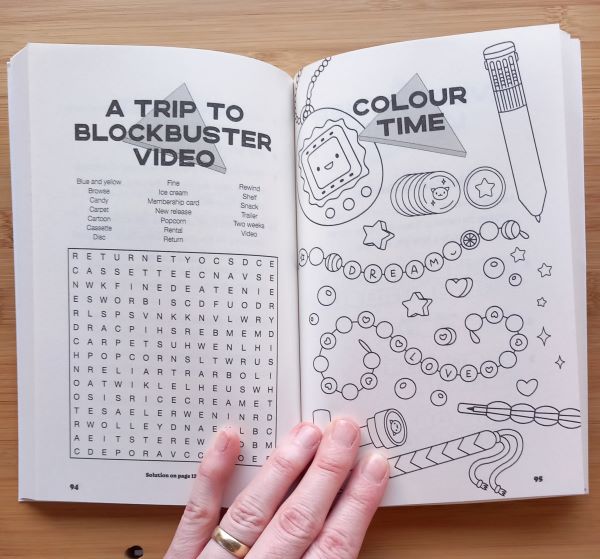 A TRIP TO
BLOCKBUSTER
VIDEO
Blue and yellow
Browse
Candy
Carpet
Cartoon
Cassette
Disc
Fine
Ice cream
Membership card
New release
Popcorn
Rental
Return
Rewind
Shelf
Snack
Trailer
Two weeks
Video
R E T U R N E T Y O C S D C E
C A S S E T T E E C N A V S E
N W K F I N E D E A T E N I E
E S W O R B I S C D F U O D R
R L S P S V N K K N V L W R Y
D R A C P I H S R E B M E M D
C A R P E T S U H W E N L H I
H P O P C O R N S L T W R U S
N R E L I A R T R A R B O L I
O A T W I K L E L H E U S W H
O S I S R I C E C R E A M E T
T E S A E L E R W E N I N R D
R W O L L E Y D N A E L B C
A E I T S T E R E W D B M
C D E P O R A V C C O E
Solution on page
94
COLOUR
TIME
DREAM
LOVE
95